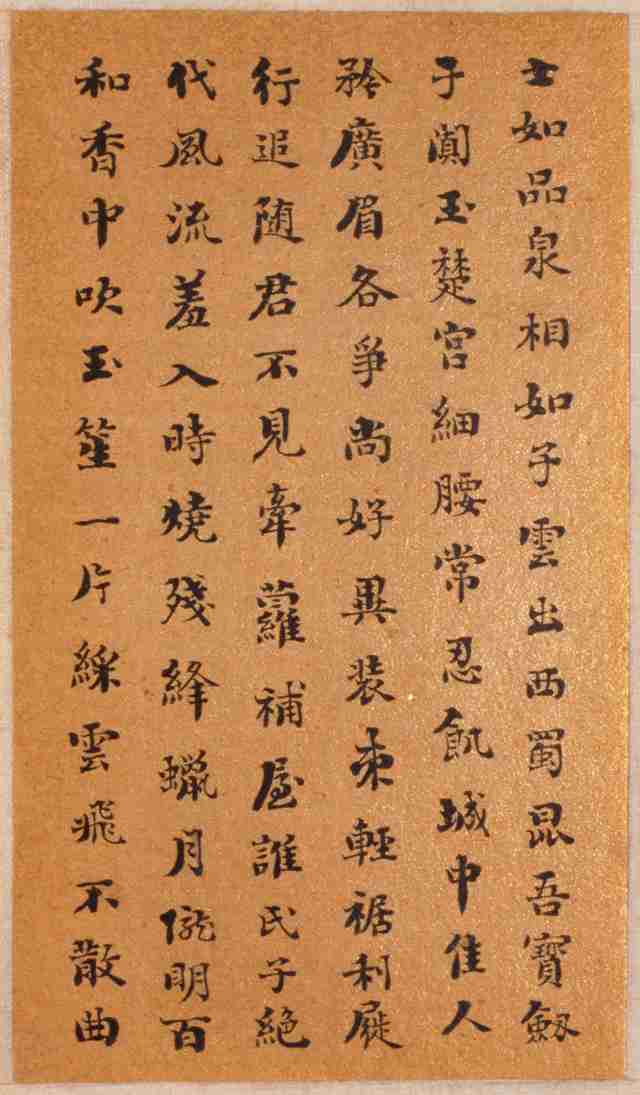 士如品泉相如子雲出西蜀昆吾寶劔
于闐玉楚宮細腰常忍飢城中佳人
矜廣眉各爭尚好異装束輕裾利屣
行追随君不見牽蘿補屋誰氏子絕
代風流羞入時燒殘絳蠟月朧明百
和香中吹玉笙一片綵雲飛不散曲